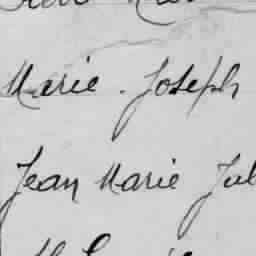 Marie. Joseph
Jean Marie Jul